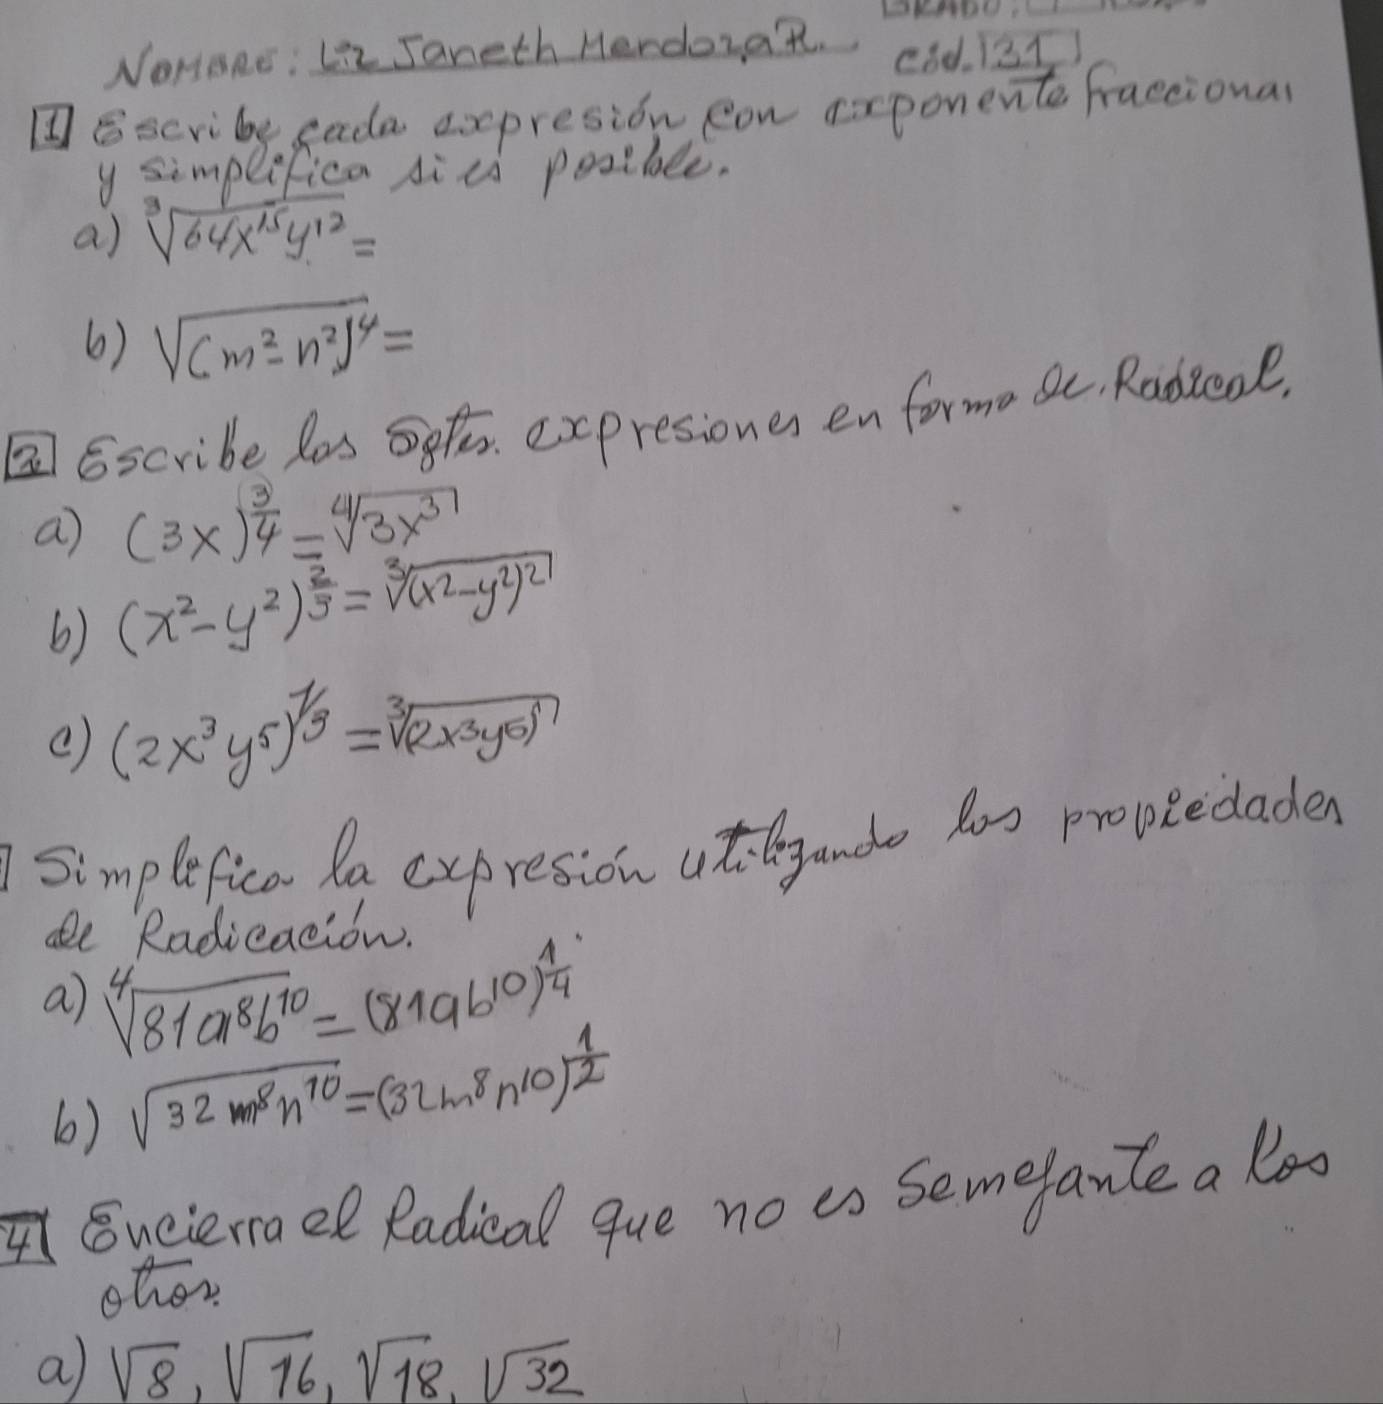 NOMBRE: Liz Janeth Mendoza R.
cód. 131
1 Escribe cada expresión con exponente fraccional
y simplifica si es posible.
a) ∛(64x¹⁵y¹²) =
b) √((m²-n²)⁴) =
2 Escribe las sgtes. expresiones en forma de Radical.
a) (3x)^(3/4) = ⁴√(3x³)
b) (x²-y²)^(2/3) = ∛((x²-y²)²)
c) (2x³y⁵)^(1/3) = ∛((2x³y⁵)¹)
Simplifica la expresión utilizando las propiedades
de Radicación.
a) ⁴√(81a⁸b¹⁰) = (81ab¹⁰)^(1/4)
b) √(32m⁸n¹⁰) = (32m⁸n¹⁰)^(1/2)
4 Encierra el Radical que no es semejante a los
otros.
a) √8, √16, √18, √32